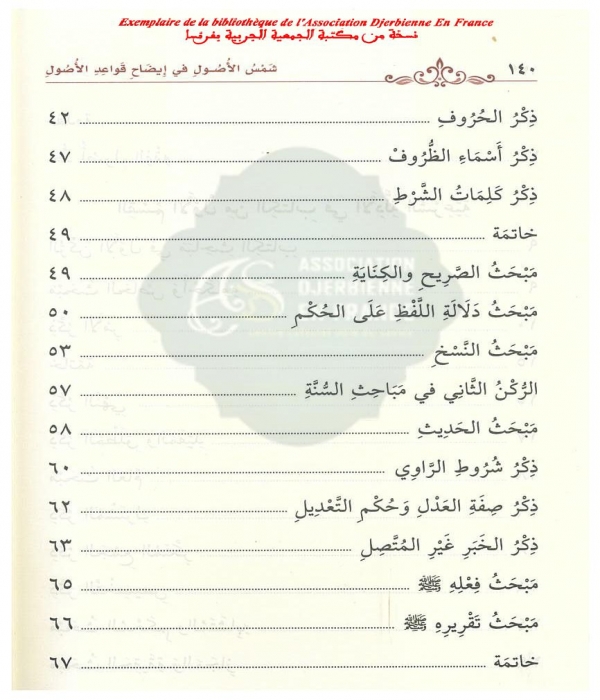 Exemplaire de la bibliothèque de l'Association Djerbienne En France
نسخة من مكتبة الجمعية الجربية بفرنسا
١٤٠ شَمْسُ الأُصُولِ في إيضَاحِ قَوَاعِدِ الأُصُولِ
ذِكْرُ الحُرُوفِ ٤٢
ذِكْرُ أَسْمَاءِ الظُّرُوفْ ٤٧
ذِكْرُ كَلِمَاتُ الشَّرْطِ ٤٨
خاتمَة ٤٩
مَبْحَثُ الصَّرِيحِ والكِنَايَةِ ٤٩
مَبْحَثُ دَلَالَةِ اللَّفْظِ عَلَى الحُكْمِ ٥٠
مَبْحَثُ النَّسْخِ ٥٣
الرُّكْنُ الثَّانِي في مَبَاحِثِ السُّنَّةِ ٥٧
مَبْحَثُ الحَدِيثِ ٥٨
ذِكْرُ شُرُوطِ الرَّاوِي ٦٠
ذِكْرُ صِفَةِ العَدْلِ وَحُكْمِ التَّعْدِيلِ ٦٢
ذِكْرُ الخَبَرِ غَيْرِ المُتَّصِلِ ٦٣
مَبْحَثُ فِعْلِهِ ﷺ ٦٥
مَبْحَثُ تَقْرِيرِهِ ﷺ ٦٦
خاتمَة ٦٧
ASSOCIATION
DJERBIENNE